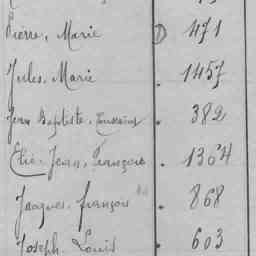 Pierre, Marie 471
Jules, Marie . 1457
Jean Baptiste, Toussaint . 382
Elie, Jean, François . 1364
Jacques, françois . 868
Joseph, Louis . 603